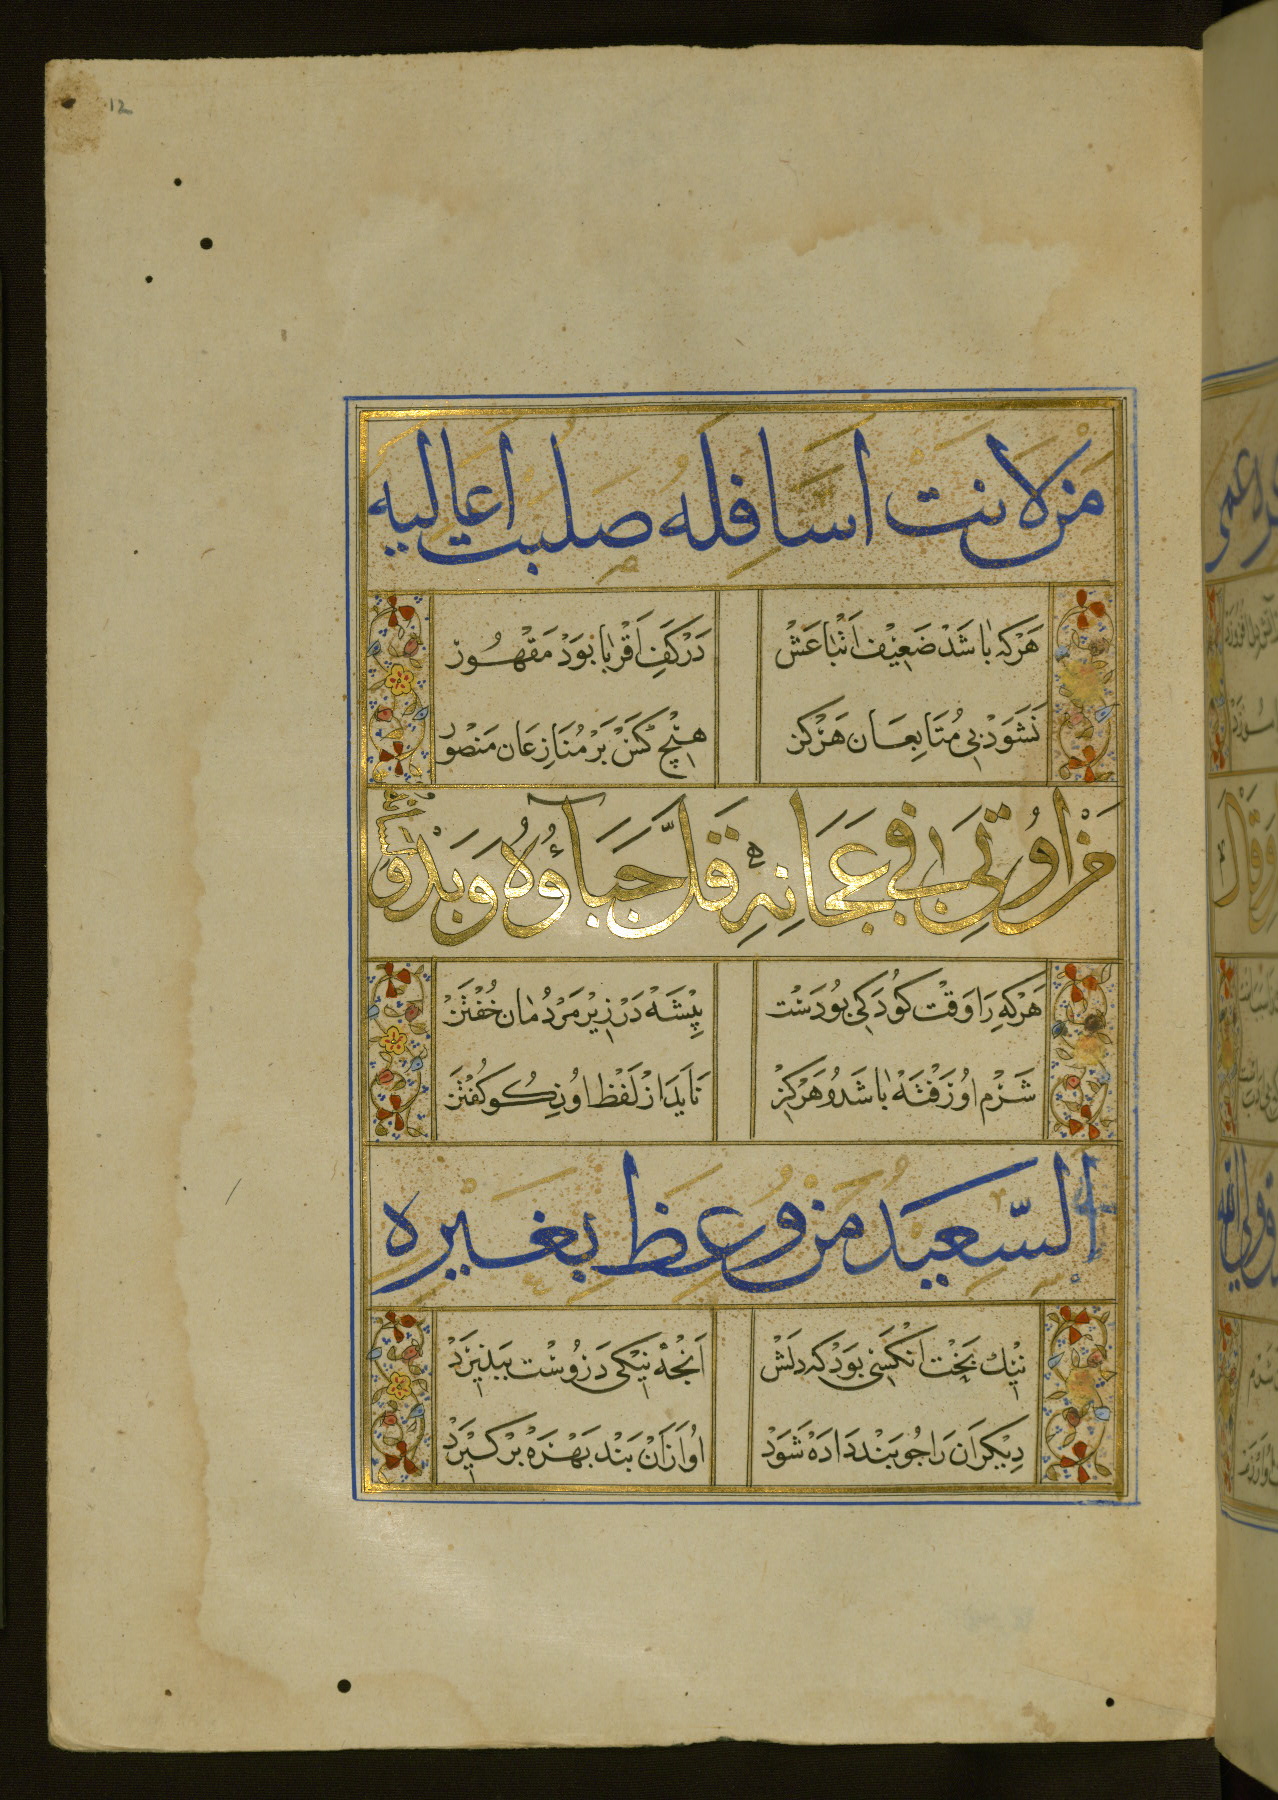 12
من لانت اسافله صلبت اعاليه
هَركه باشد ضعیف اتباعش در کف اقربا بود مقهور
نشود بی متابعان هرکز هیچ کس بر منازعان منصور
من اوتى فى عجانه قل حياؤه وبذو لسانه
هرکه را وقت کودکی بودست پیشه در زیر مردمان خفتن
شرم او رفته باشد و هرکز ناید از لفظ او نکو کفتن
السعيد من وعظ بغيره
نیک بخت انکسی بود که دلش انجه نیکی دروست بپذیرد
دیکران را جو بند داده شود او از آن بند بهره بر کیرد